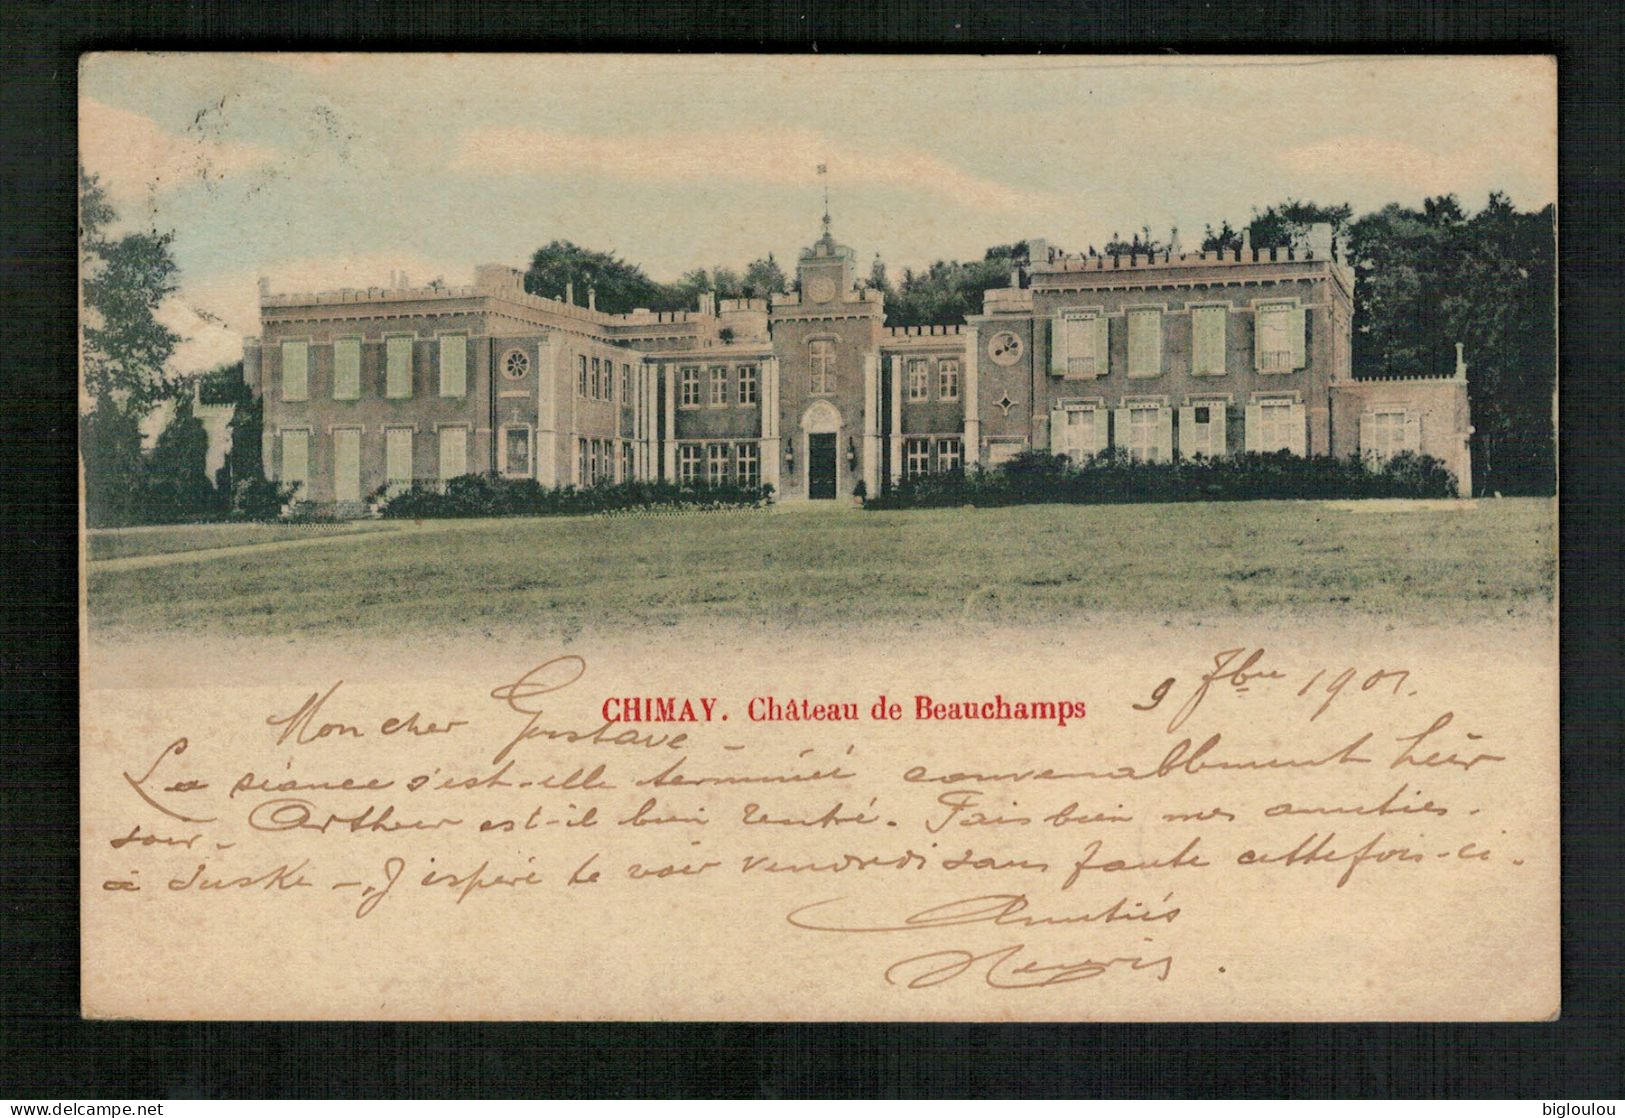 CHIMAY. Château de Beauchamps
9 7bre 1901.
Mon cher Gustave -
La séance s'est-elle terminée convenablement hier
soir. Arthur est-il bien rentré. Fais bien mes amitiés
à Juske - J'espère te voir vendredi sans faute cette fois-ci.
Amitiés
delcampe.net
bigloulou